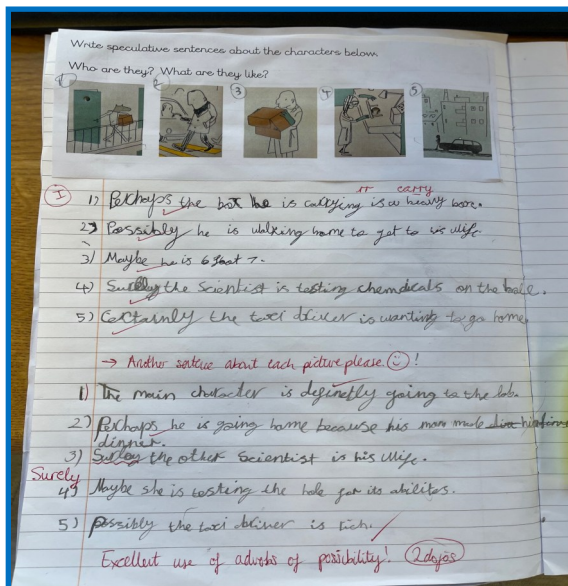 Write speculative sentences about the characters below.
Who are they? What are they like?
1 2 3 4 5
rr carry
I 1) Perhaps the box he is carrying is a heavy one.
2) Possibly he is walking home to get to his wife.
3) Maybe he is 6 foot 7.
4) Surely the scientist is testing chemdicals on the hole.
5) Certainly the taxi driver is wanting to go home.
→ Another sentence about each picture please. !
1) The main character is definetly going to the lab.
2) Perhaps he is going home because his mam made him
dinner.
3) Surley the other scientist is his wife.
Surely
4) Maybe she is testing the hole for its abilites.
5) possibly the taxi driver is rich.
Excellent use of adverbs of possibility! 2 dojos